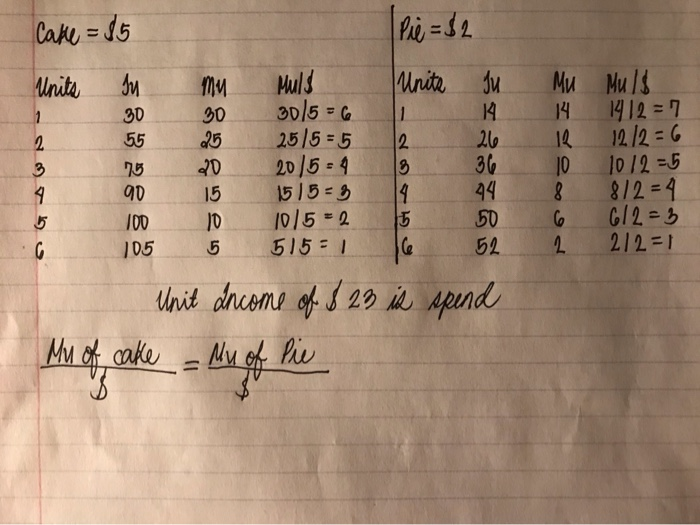 Cake = $5 Pie = $2
Units Tu Mu Mu/$ Units Tu Mu Mu/$
1 30 30 30/5 = 6 1 14 14 14/2 = 7
2 55 25 25/5 = 5 2 26 12 12/2 = 6
3 75 20 20/5 = 4 3 36 10 10/2 = 5
4 90 15 15/5 = 3 4 44 8 8/2 = 4
5 100 10 10/5 = 2 5 50 6 6/2 = 3
6 105 5 5/5 = 1 6 52 2 2/2 = 1
Unit Income of $23 is spend
Mu of cake = Mu of Pie
$ $